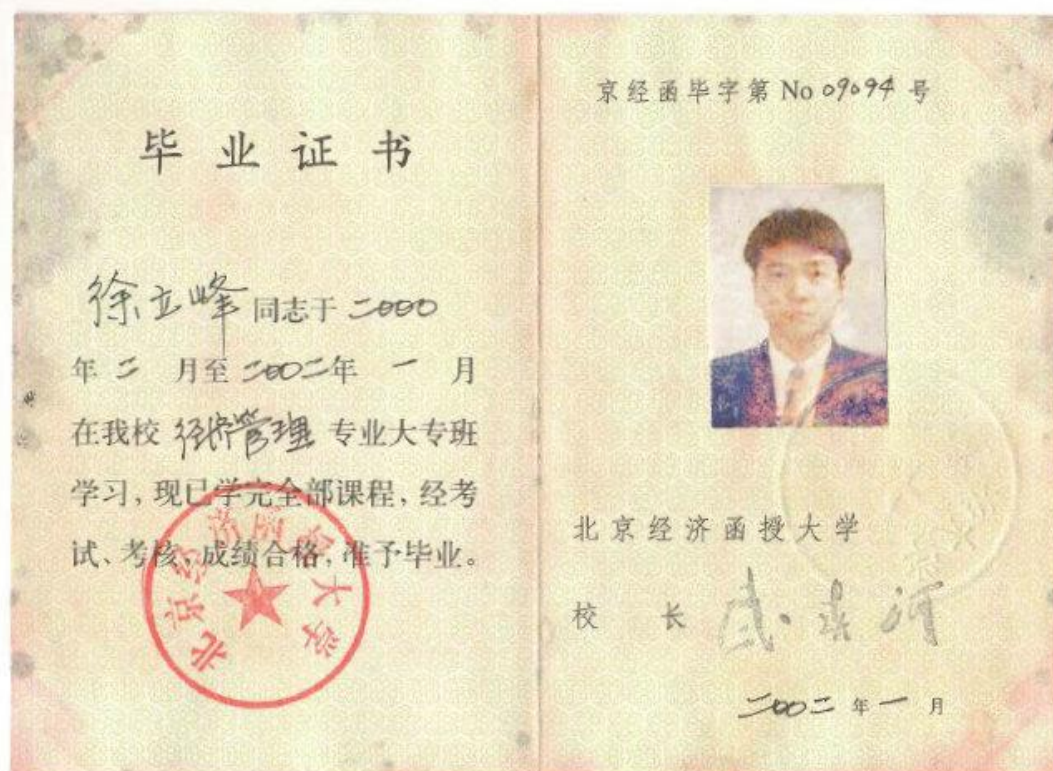 毕业证书
徐立峰同志于二000
年二月至二00二年一月
在我校经济管理专业大专班
学习,现已学完全部课程,经考
试、考核,成绩合格,准予毕业。
北京经济函授大学
京经函毕字第 No 09094 号
北京经济函授大学
校长
二00二年一月